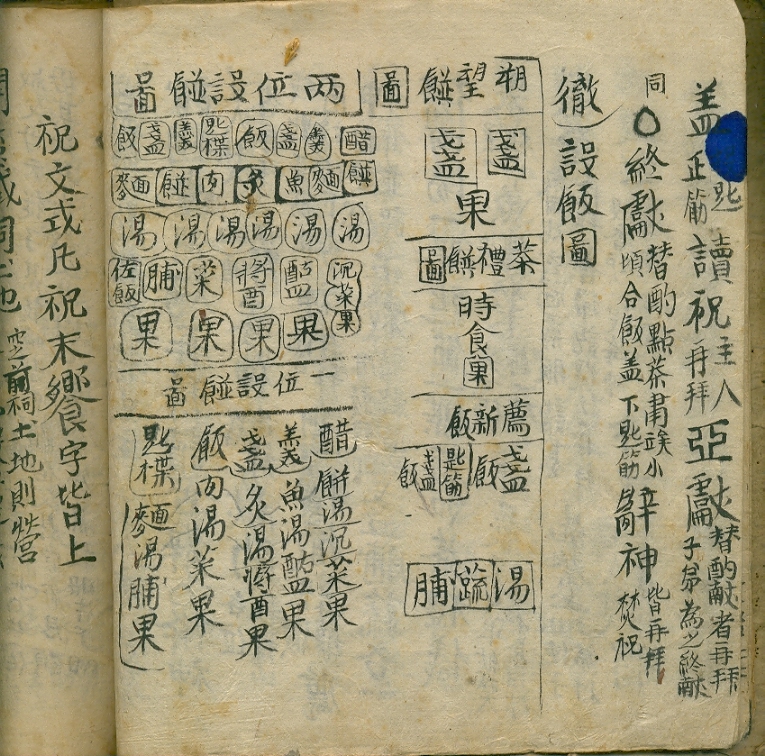 盖 正 匙筯 讀祝 主人再拜 亞獻 替酌獻者再拜 子弟為之終獻
同 〇 終獻 替酌點茶肅竢小頃合飯盖下匙筯 辭神 皆再拜 焚祝
徹 設飯圖
朔望餠圖
盞 盞
果
茶禮餠圖
時食
果
薦新飯
盞 飯 匙筯 盞 飯
湯 蔬 脯
两位設餠圖
醋 羹 盞 飯 匙楪 羹 盞 飯
餠 麵 魚 炙 肉 餠 麵
湯 湯 湯 湯 湯 湯
沉菜 醢 醬 菜 脯 佐飯
果 果 果 果 果
一位設餠圖
醋 餠 湯 沉菜 果
羹 魚 湯 醢 果
盞 炙 湯 醬 果
飯 肉 湯 菜 果
匙楪 麵 湯 脯 果
祝文或凡祝末饗字皆上
祠土地則